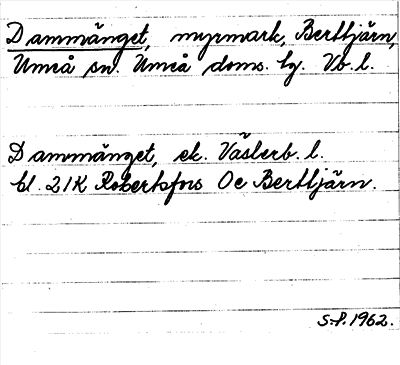 Dammänget, myrmark, Berttjärn,
Umeå sn. Umeå doms. tg. Vb. l.
Dammänget, ek. Västerb. l.
bl. 21K Robertsfors Oc Berttjärn.
S.P. 1962.